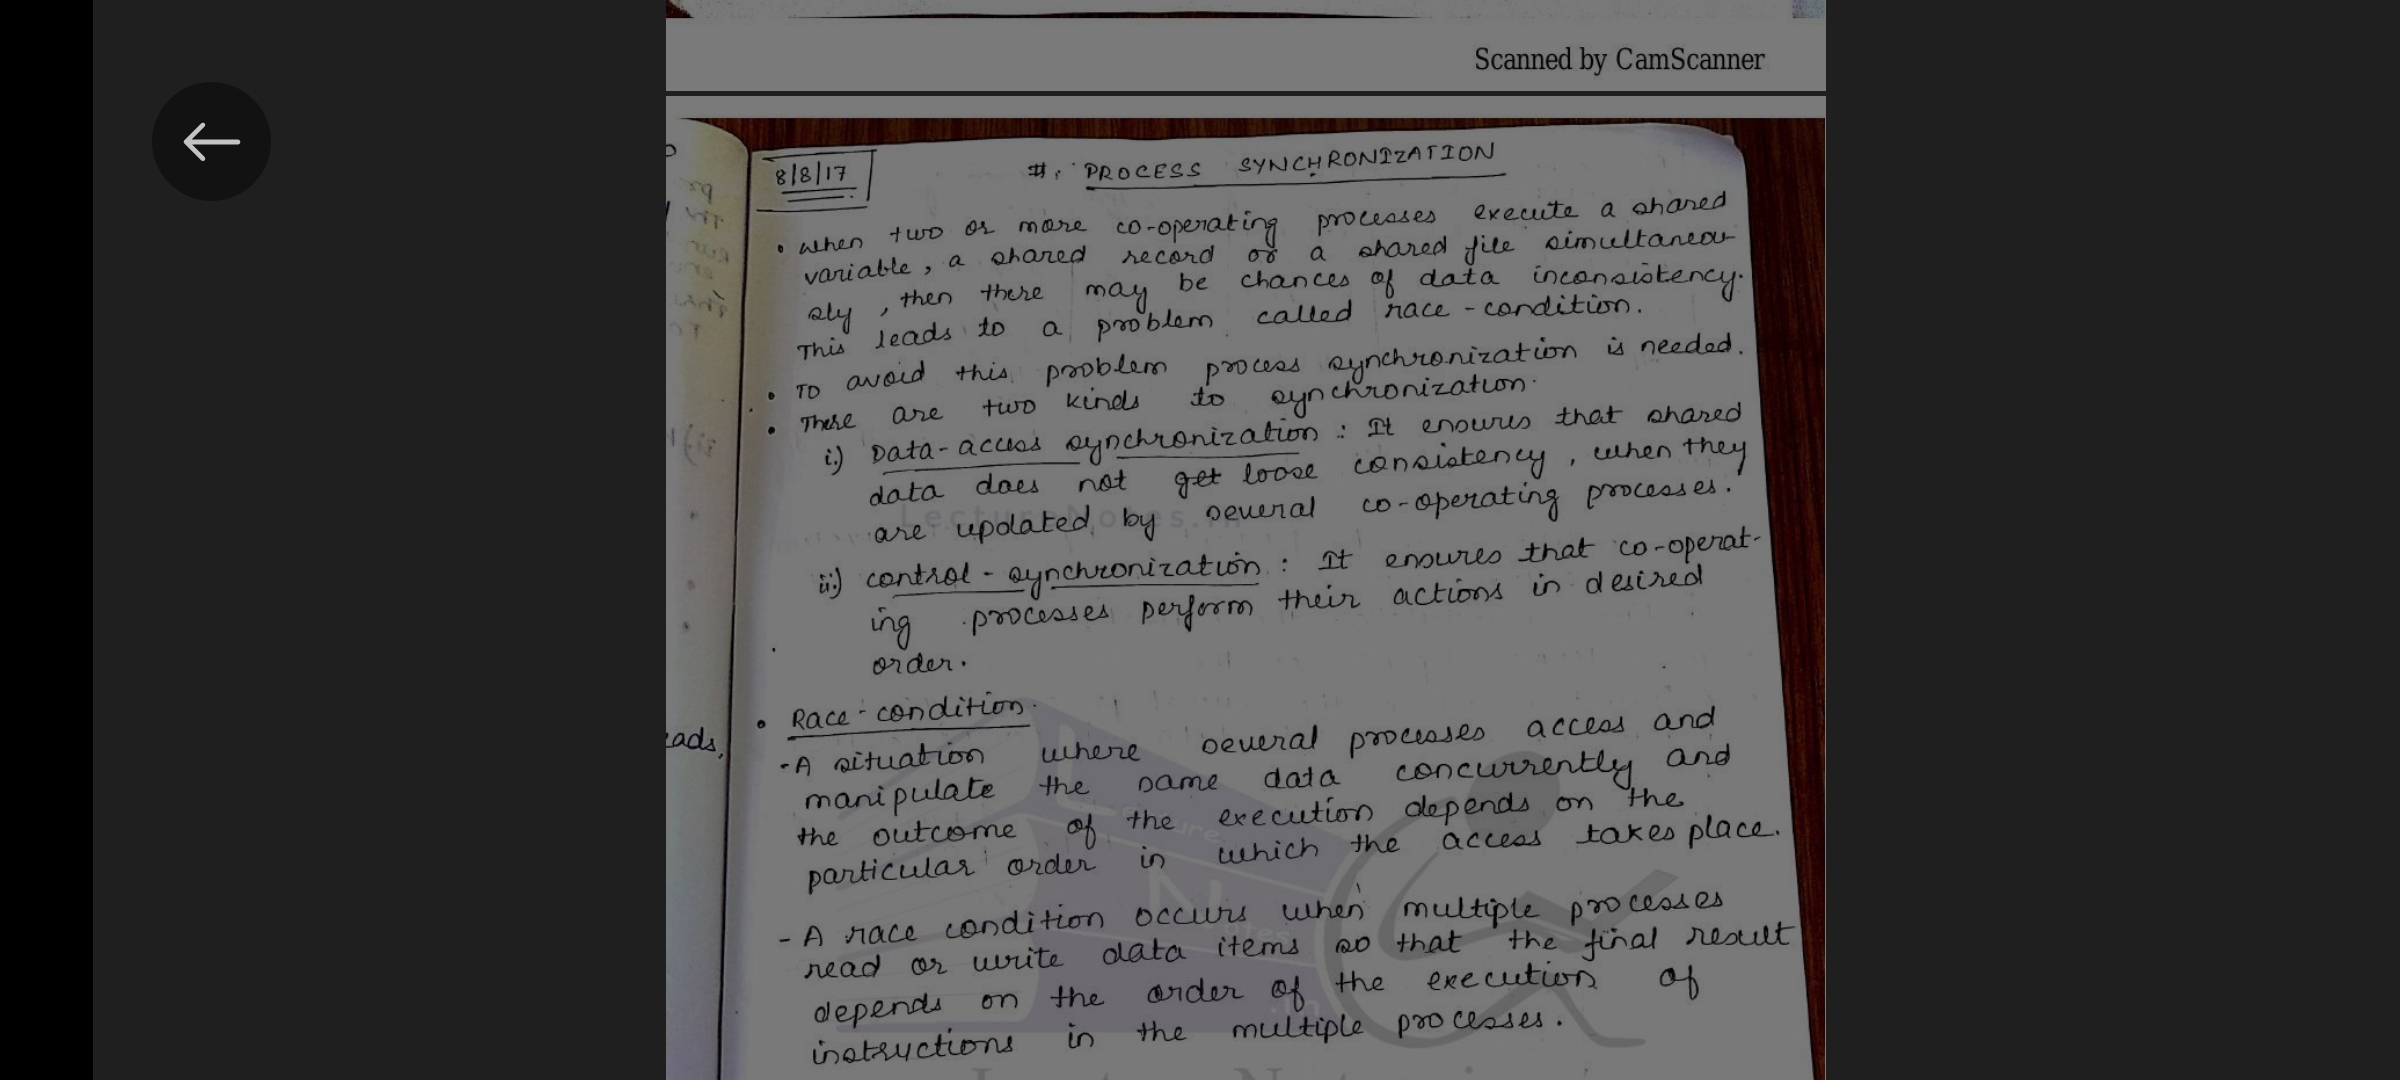 Scanned by CamScanner
8/8/17
#: PROCESS SYNCHRONIZATION
• when two or more co-operating processes execute a shared
variable, a shared record or a shared file simultaneou
sly, then there may be chances of data inconsistency.
This leads to a problem called race-condition.
• To avoid this problem process synchronization is needed.
• There are two kinds to synchronization.
i.) Data-access synchronization : It ensures that shared
data does not get loose consistency, when they
are updated by several co-operating processes.
ii.) control-synchronization : It ensures that co-operat-
ing processes perform their actions in desired
order.
• Race-condition.
-A situation where several processes access and
manipulate the same data concurrently and
the outcome of the execution depends on the
particular order in which the access takes place.
- A race condition occurs when multiple processes
read or write data items so that the final result
depends on the order of the execution of
instructions in the multiple processes.
eads,
LectureNotes.in